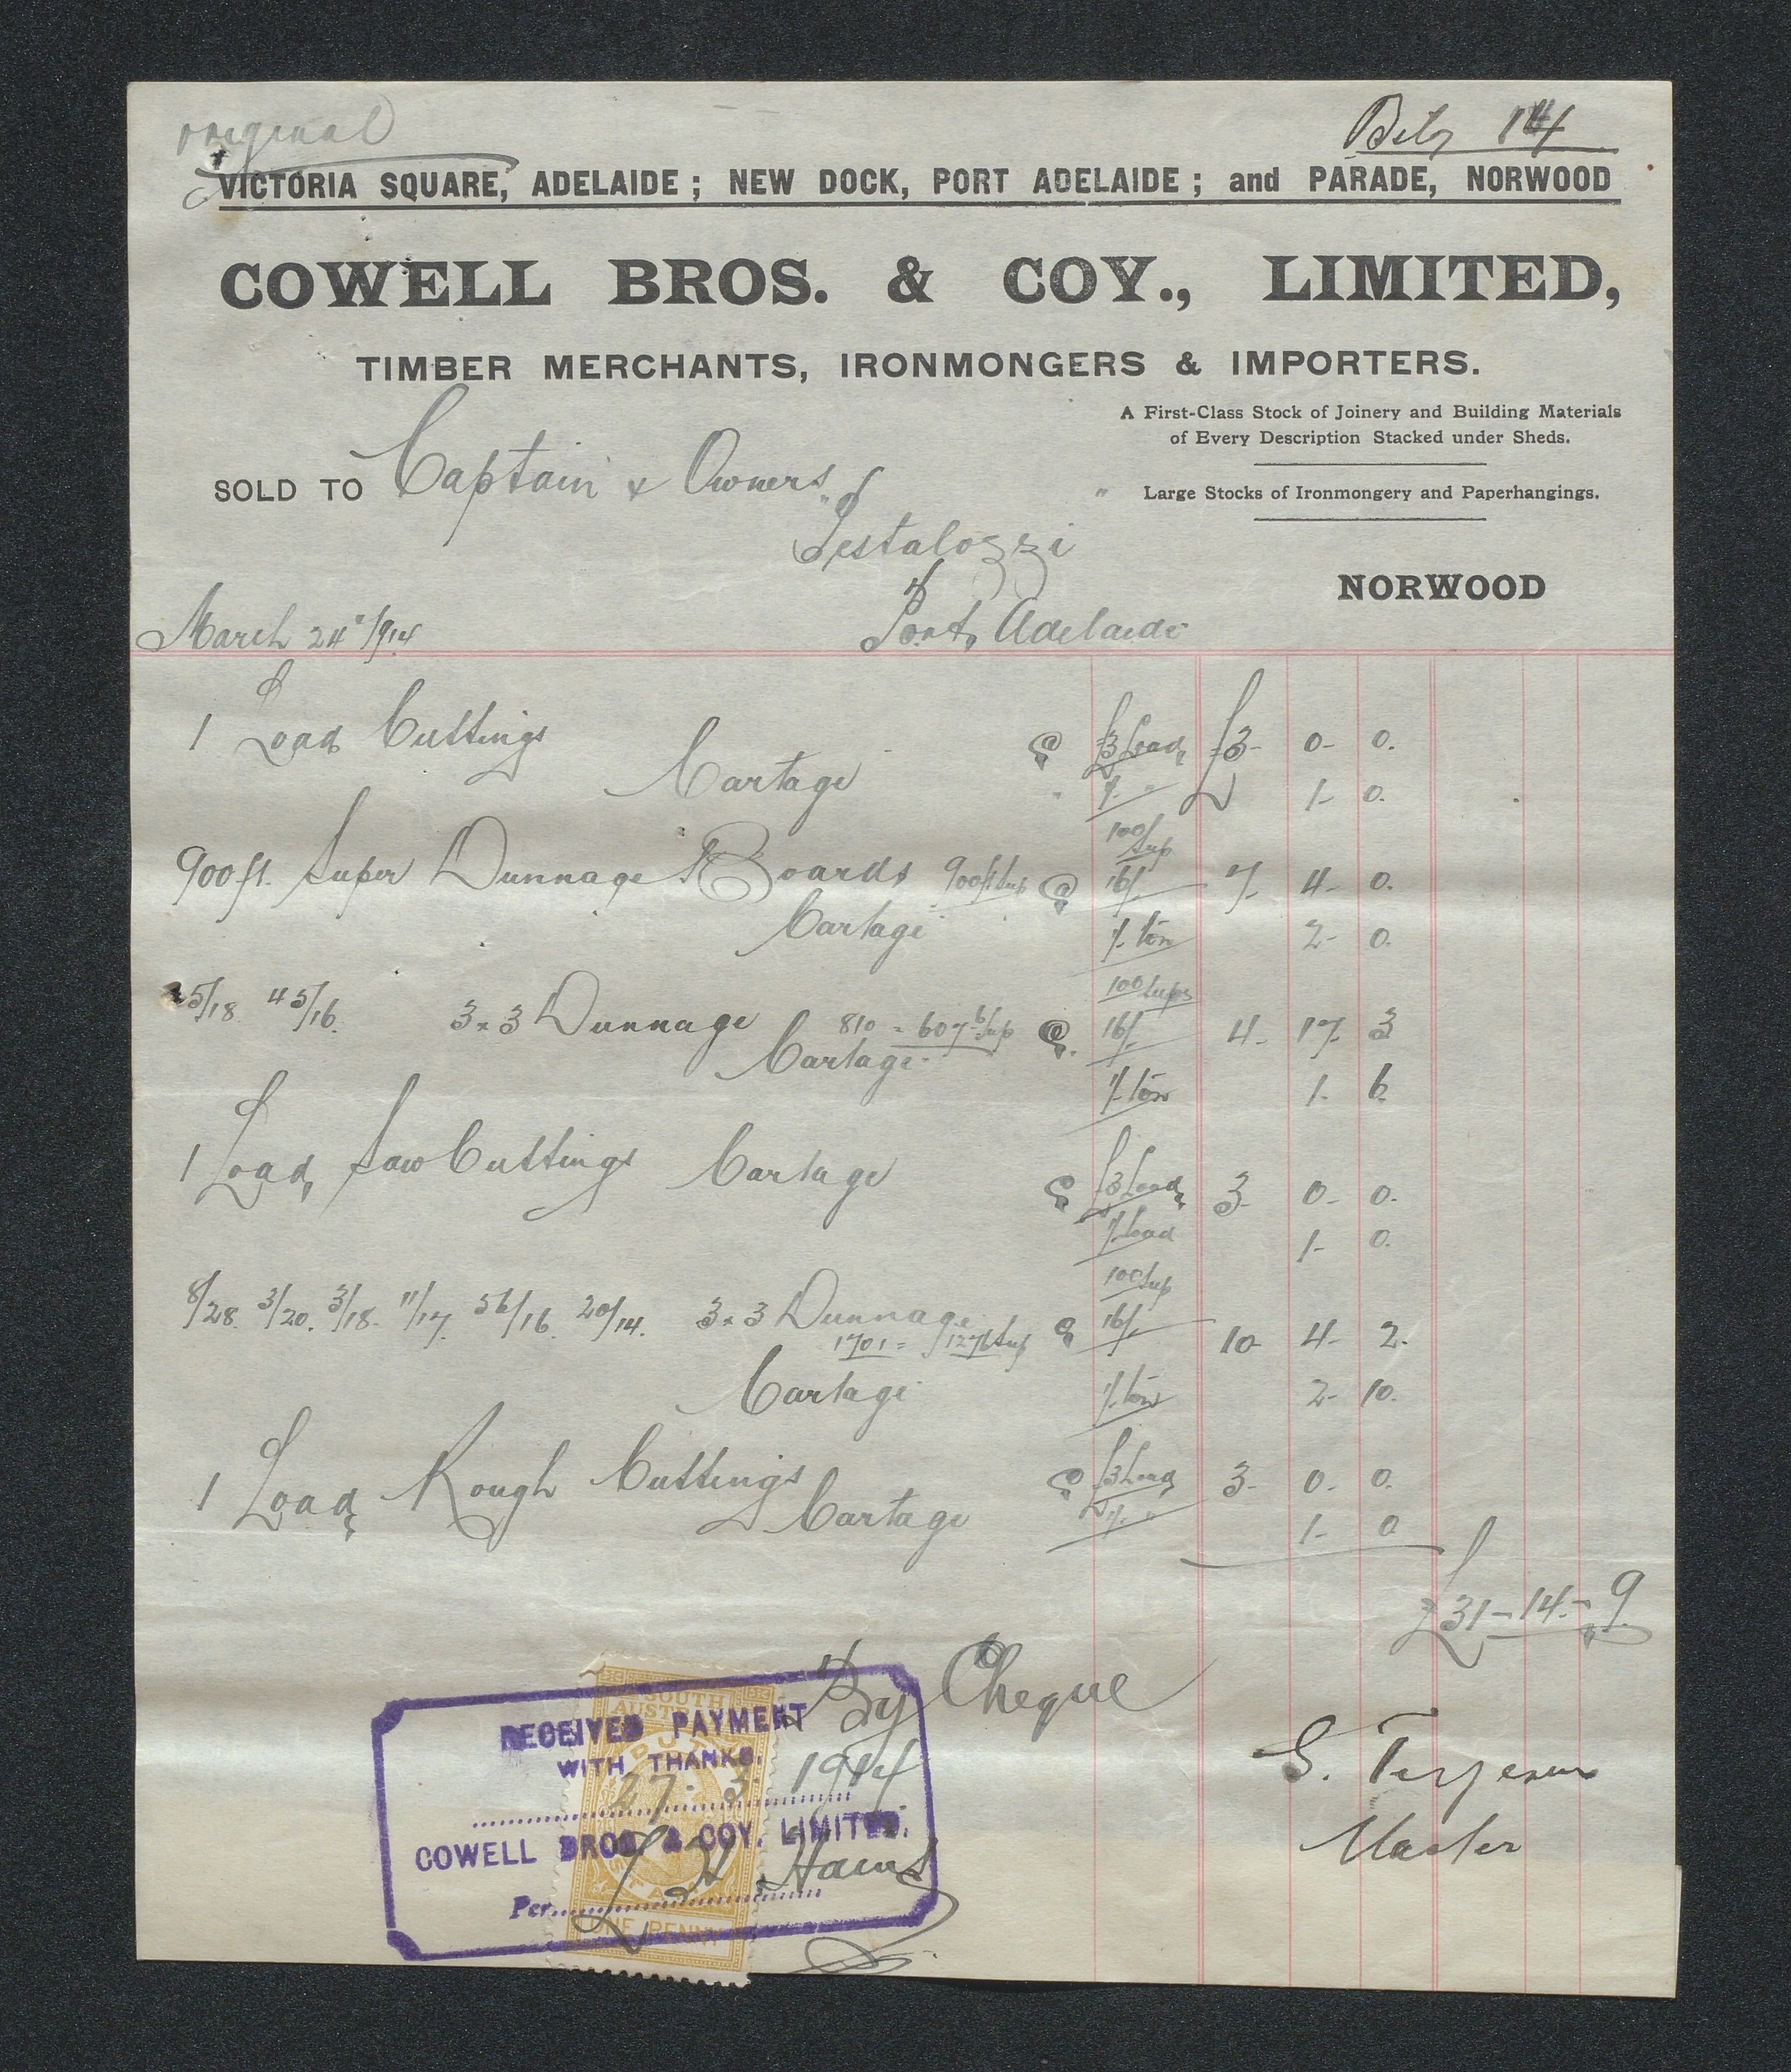 original
Belg 14
VICTORIA SQUARE, ADELAIDE; NEW DOCK, PORT ADELAIDE; and PARADE, NORWOOD
COWELL BROS. & COY., LIMITED,
TIMBER MERCHANTS, IRONMONGERS & IMPORTERS.
A First-Class Stock of Joinery and Building Materials
of Every Description Stacked under Sheds.
SOLD TO Captain & Owners
" Large Stocks of Ironmongery and Paperhangings.
"Pestalozzi
NORWOOD
March 24" 1914 Port Adelaide
1 Load Cuttings @ £3 Load £3- 0- 0.
Cartage " 1/- " 1- 0.
100/sup
900 ft. Super Dunnage Boards 900ft Sup @ 16/- 7- 4- 0.
Cartage 1/- ton 2- 0.
100 sups
25/18 45/16. 3x3 Dunnage 810 = 607 6/ Sup @ 16/- 4- 17- 3
Cartage 1/- ton 1- 6
1 Load Saw Cuttings Cartage @ £3 Load 3- 0- 0.
1/- Load 1- 0.
100 Sup
8/28. 3/20. 3/18. 11/17. 56/16. 20/14. 3x3 Dunnage @ 16/- 10 4- 2.
1701 = 1276 Sup
Cartage 1/- ton 2- 10.
1 Load Rough Cuttings @ £3 Load 3- 0- 0.
Cartage 1/- " 1- 0
£31-14-9
By Cheque
SOUTH
AUSTRALIA
DUTY
RECEIVED PAYMENT
WITH THANKS.
27. 3. 1914
COWELL BROS. & COY. LIMITED.
Per
STAMP
ONE PENNY
S. Terjesen
Master